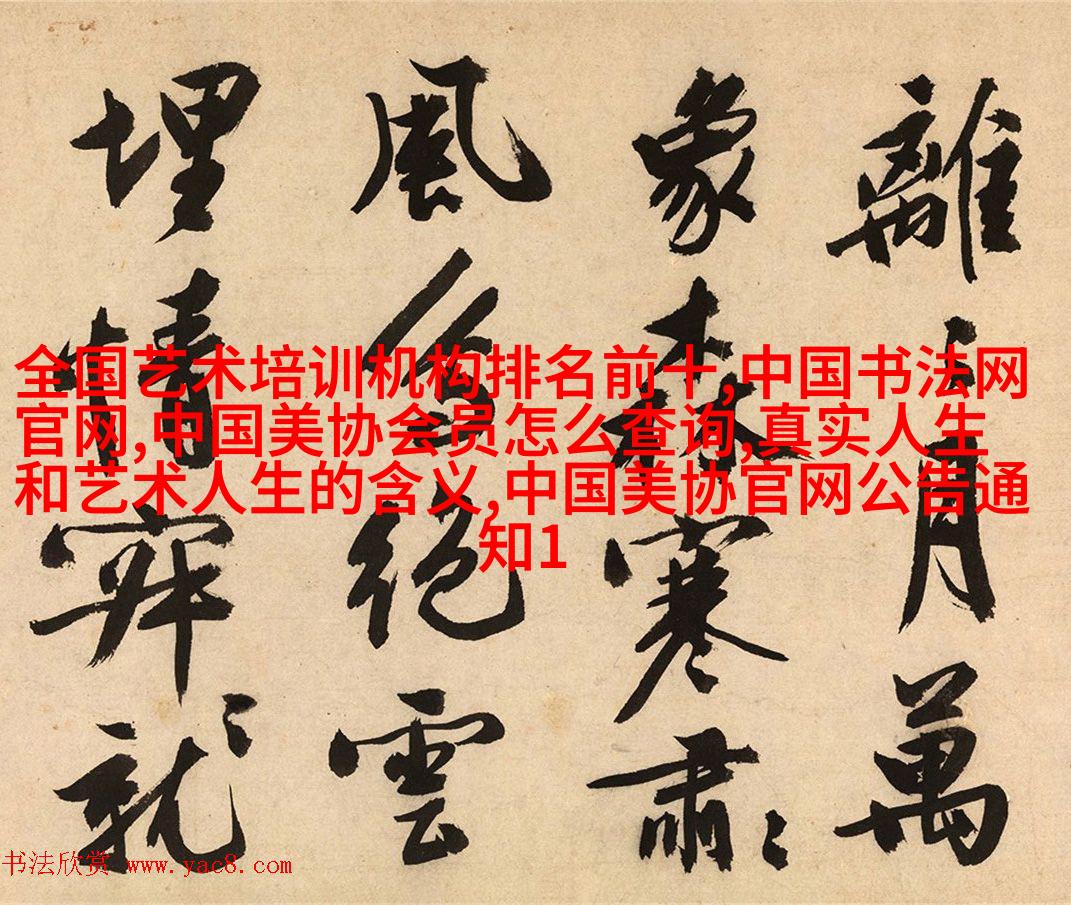 離
月萬
象森寒肅
風絕雲
埋就
全国艺术培训机构排名前十,中国书法网
官网,中国美协会员怎么查询,真实人生
和艺术人生的含义,中国美协官网公告通
知1
书法欣赏 www.yac8.com